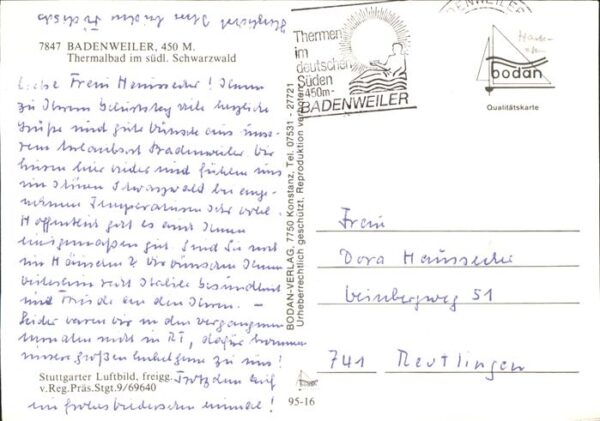 7847 BADENWEILER, 450 M.
Thermalbad im südl. Schwarzwald
Liebe Frau ! Ihnen
zu Ihrem Geburtstag viele herzliche
Grüße und gute Wünsche aus uns-
rem Urlaubsort Badenweiler. Wir
hier wieder und fühlen uns
im Schwarzwald bei ange-
nehmen Temperaturen sehr wohl.
Hoffentlich geht es auch Ihnen
einigermaßen gut. Sind Sie noch
im Häuschen? Wir wünschen Ihnen
recht stabile Gesundheit
und Freude an den Ihren. –
Leider waren wir in den vergangenen
Monaten nicht in RT, dafür kommen
unsere großen Enkel zu uns!
Trotzdem auf
ein frohes Wiedersehen einmal!
Stuttgarter Luftbild, freigg.
v.Reg.Präs.Stgt.9/69640
BODAN-VERLAG, 7750 Konstanz, Tel. 07531 - 27721
Urheberrechtlich geschützt, Reproduktion verboten
95-16
Thermen
im
deutschen
Süden
450m-
BADENWEILER
BADENWEILER
bodan
Qualitätskarte
Frau
Dora
Weinbergweg 51
741 Reutlingen